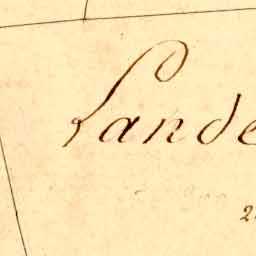 Lande
2